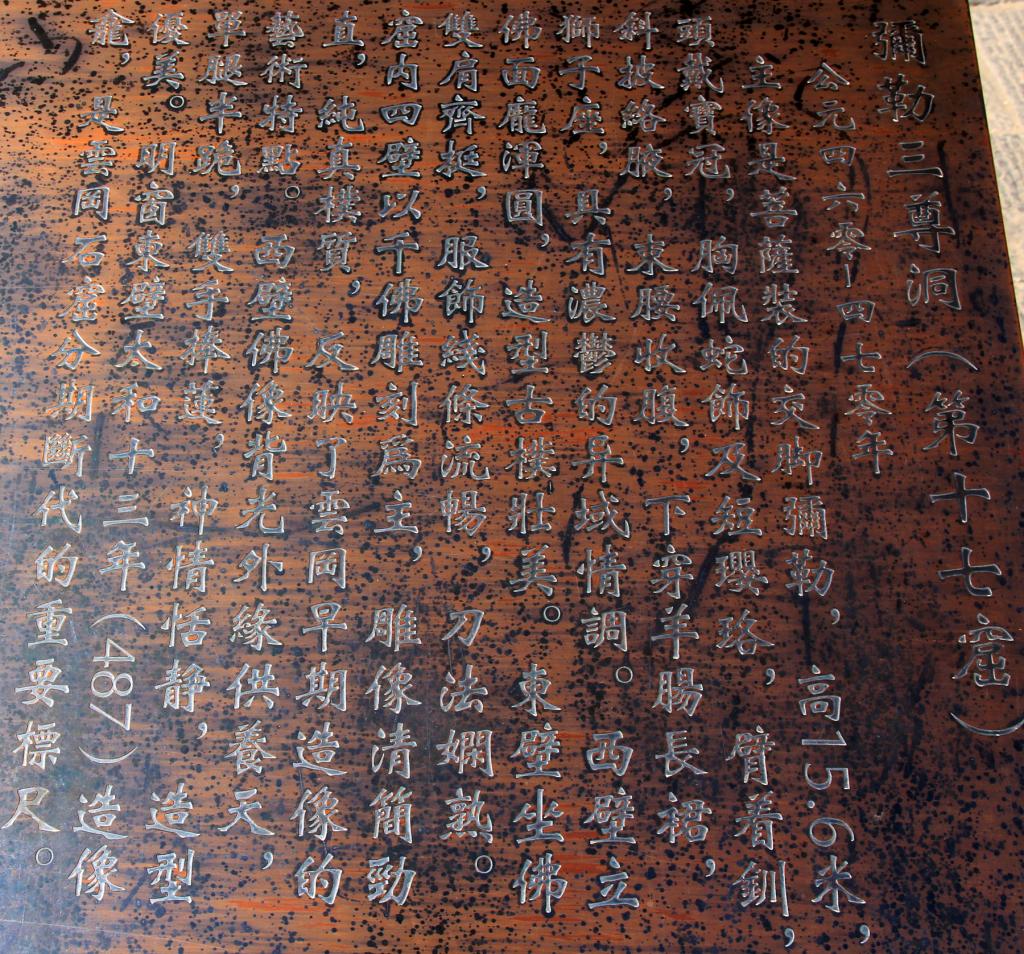 彌勒三尊洞（第十七窟）
公元四六零-四七零年
主像是菩薩裝的交脚彌勒，高15.6米，
頭戴寶冠，胸佩蛇飾及短瓔珞，臂着釧，
斜披絡腋，束腰收腹，下穿羊腸長裙，
獅子座，具有濃鬱的异域情調。西壁立
佛面龐渾圓，造型古樸壯美。東壁坐佛
雙肩齊挺，服飾綫條流暢，刀法嫻熟。
窟内四壁以千佛雕刻爲主，雕像清簡勁
直，純真樸質，反映了雲岡早期造像的
藝術特點。西壁佛像背光外緣供養天，
單腿半跪，雙手捧蓮，神情恬静，造型
優美。明窗東壁太和十三年（487）造像
龕，是雲岡石窟分期斷代的重要標尺。